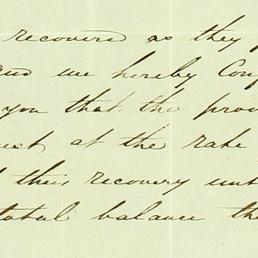 recovered as they
and we hereby Con
you that the prov
est at the rate
their recovery unt
total balance the